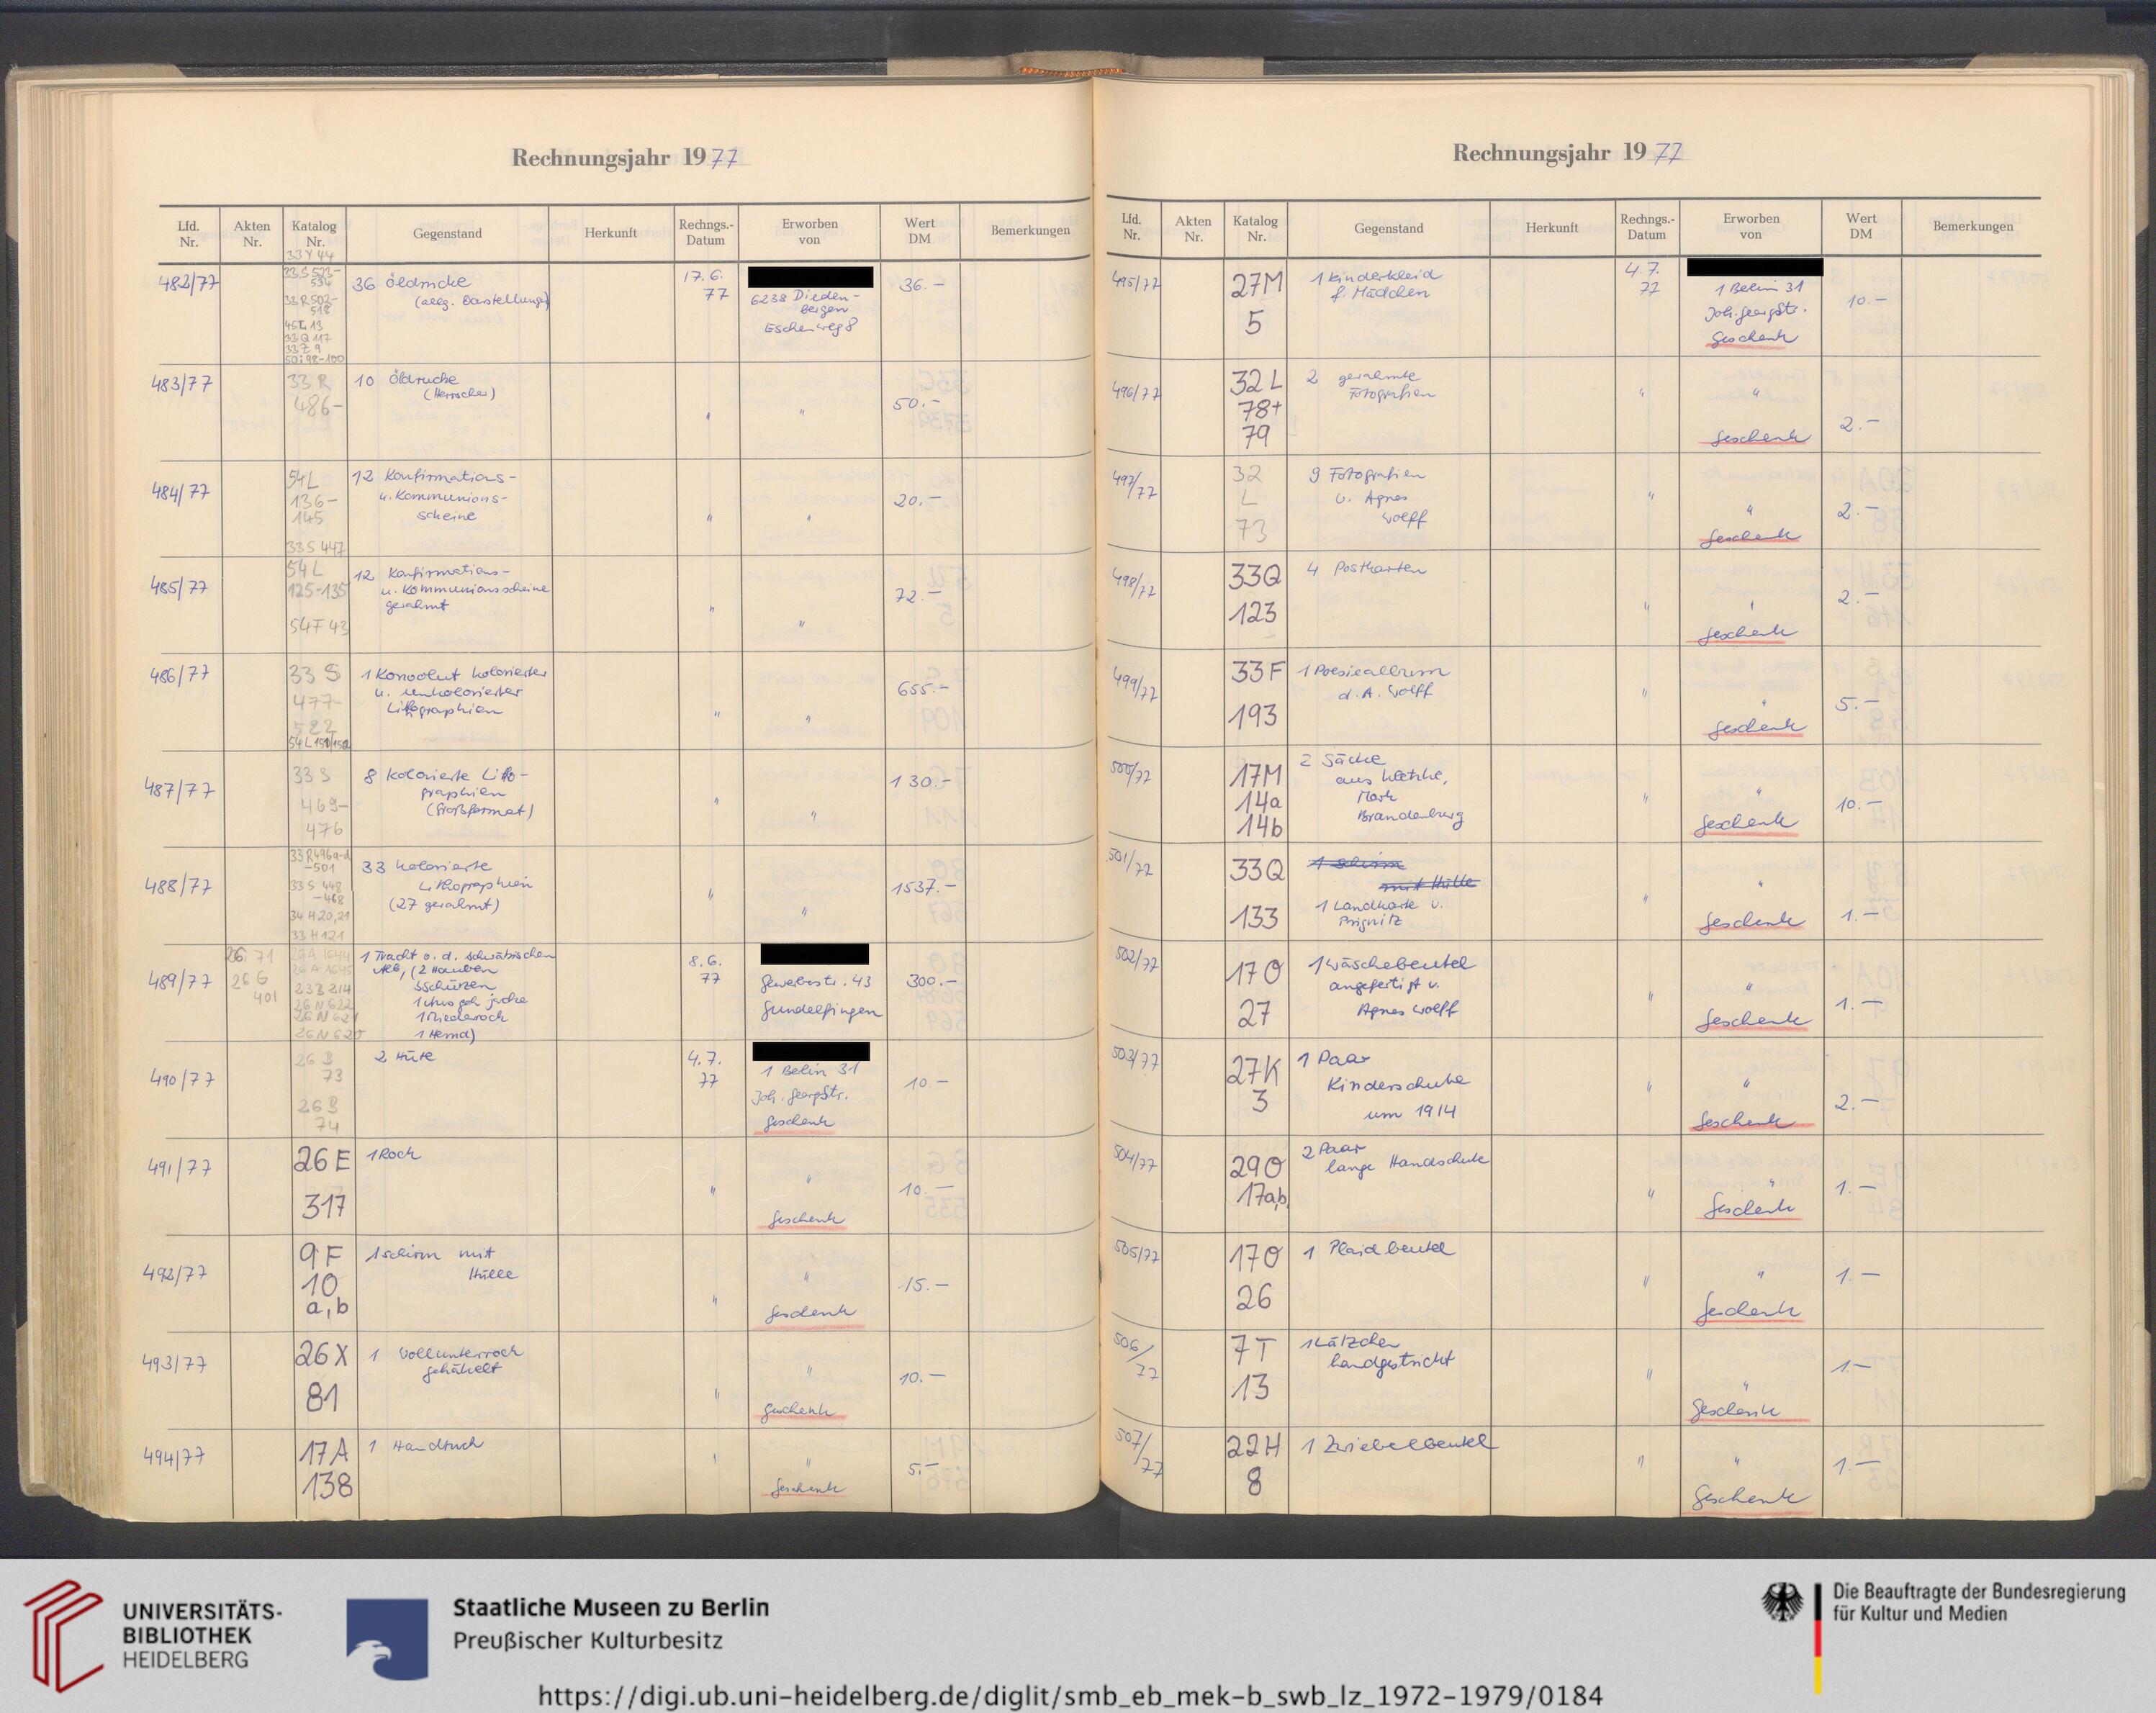 Rechnungsjahr 1977
Lfd. Nr.
Akten Nr.
Katalog Nr.
Gegenstand
Herkunft
Rechngs.-Datum
Erworben von
Wert DM
Bemerkungen
33 Y 44
482/77
33 S 523-
534
33 R 502-
518
45 L 13
33 Q 117
33 Z 9
50 i 98-100
36 Öldrucke
(allg. Darstellungen)
17.6.
77
6238 Dieden-
bergen
Eschenweg 8
36.-
483/77
33 R
486-
10 Öldrucke
(Herrscher)
"
"
50.-
484/77
54 L
136-
145
33 S 447
12 Konfirmations-
u. Kommunions-
scheine
"
"
20.-
485/77
54 L
125-135
54 F 43
12 Konfirmations-
u. Kommunionsscheine
gerahmt
"
"
72.-
486/77
33 S
477-
522
54 L 151/152
1 Konvolut kolorierter
u. unkolorierter
Lithographien
"
"
655.-
487/77
33 S
469-
476
8 kolorierte Litho-
graphien
(Großformat)
"
"
130.-
488/77
33 R 496a-d
-501
33 S 448
-468
34 H 20,21
33 H 121
33 kolorierte
Lithographien
(27 gerahmt)
"
"
1537.-
489/77
26 i 71
26 G
401
26 A 1644
26 A 1645
23 B 214
26 N 622
26 N 621
26 N 625
1 Tracht v. d. schwäbischen
Alb, (2 Hauben
3 Schürzen
jacke
1 Miederrock
1 Hemd)
8.6.
77
Gewerbestr. 43
Gundelfingen
300.-
490/77
26 B
73
26 B
74
2 Hüte
4.7.
77
1 Berlin 31
Joh. Georgstr.
Geschenk
10.-
491/77
26 E
317
1 Rock
"
"
Geschenk
10.-
492/77
9 F
10
a, b
1 Schirm mit
Hülle
"
"
Geschenk
15.-
493/77
26 X
81
1 Wollunterrock
gehäkelt
"
"
Geschenk
10.-
494/77
17 A
138
1 Handtuch
"
"
Geschenk
5.-
Rechnungsjahr 1977
Lfd. Nr.
Akten Nr.
Katalog Nr.
Gegenstand
Herkunft
Rechngs.-Datum
Erworben von
Wert DM
Bemerkungen
495/77
27M
5
1 Kinderkleid
f. Mädchen
4.7.
77
1 Berlin 31
Joh. Georgstr.
Geschenk
10.-
496/77
32 L
78+
79
2 gerahmte
Fotografien
"
"
Geschenk
2.-
497/77
32
L
73
9 Fotografien
v. Agnes
Wolff
"
"
Geschenk
2.-
498/77
33Q
123
4 Postkarten
"
"
Geschenk
2.-
499/77
33F
193
1 Poesiealbum
d. A. Wolff
"
"
Geschenk
5.-
500/77
17M
14a
14b
2 Säcke
aus Kletzke,
Mark
Brandenburg
"
"
Geschenk
10.-
501/77
33Q
133
1 Schirm
mit Hülle
1 Landkarte v.
Prignitz
"
"
Geschenk
1.-
502/77
17 O
27
1 Wäschebeutel
angefertigt v.
Agnes Wolff
"
"
Geschenk
1.-
503/77
27K
3
1 Paar
Kinderschuhe
um 1914
"
"
Geschenk
2.-
504/77
29 O
17a,b,
2 Paar
lange Handschuhe
"
"
Geschenk
1.-
505/77
17 O
26
1 Plaidbeutel
"
"
Geschenk
1.-
506/
77
7 T
13
1 Lätzchen
handgestrickt
"
"
Geschenk
1.-
507/
77
22H
8
1 Zwiebelbeutel
"
"
Geschenk
1.-
UNIVERSITÄTS-
BIBLIOTHEK
HEIDELBERG
Staatliche Museen zu Berlin
Preußischer Kulturbesitz
Die Beauftragte der Bundesregierung
für Kultur und Medien
https://digi.ub.uni-heidelberg.de/diglit/smb_eb_mek-b_swb_lz_1972-1979/0184